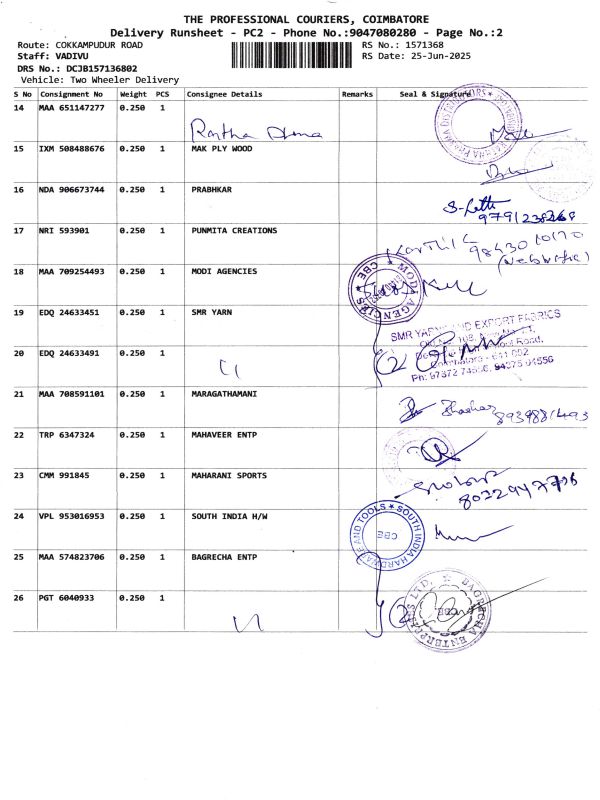 THE PROFESSIONAL COURIERS, COIMBATORE
Delivery Runsheet - PC2 - Phone No.:9047080280 - Page No.:2
Route: COKKAMPUDUR ROAD
Staff: VADIVU
DRS No.: DCJB157136802
Vehicle: Two Wheeler Delivery
RS No.: 1571368
RS Date: 25-Jun-2025
S No Consignment No Weight PCS Consignee Details Remarks Seal & Signature
14 MAA 651147277 0.250 1
15 IXM 508488676 0.250 1 MAK PLY WOOD
16 NDA 906673744 0.250 1 PRABHKAR
9791238268
17 NRI 593901 0.250 1 PUNMITA CREATIONS
Karthik
98430 10170
18 MAA 709254493 0.250 1 MODI AGENCIES
MODI AGENCIES CBE
19 EDQ 24633451 0.250 1 SMR YARN
SMR YARN AND EXPORT FABRICS
20 EDQ 24633491 0.250 1
(2)
Coimbatore - 641 002
Ph: 97372 74556, 94375 04556
21 MAA 708591101 0.250 1 MARAGATHAMANI
22 TRP 6347324 0.250 1 MAHAVEER ENTP
23 CMM 991845 0.250 1 MAHARANI SPORTS
24 VPL 953016953 0.250 1 SOUTH INDIA H/W
SOUTH INDIA HARDWARE AND TOOLS CBE
25 MAA 574823706 0.250 1 BAGRECHA ENTP
26 PGT 6040933 0.250 1
(2)
BAGRECHA ENTERPRISES LTD. CBE